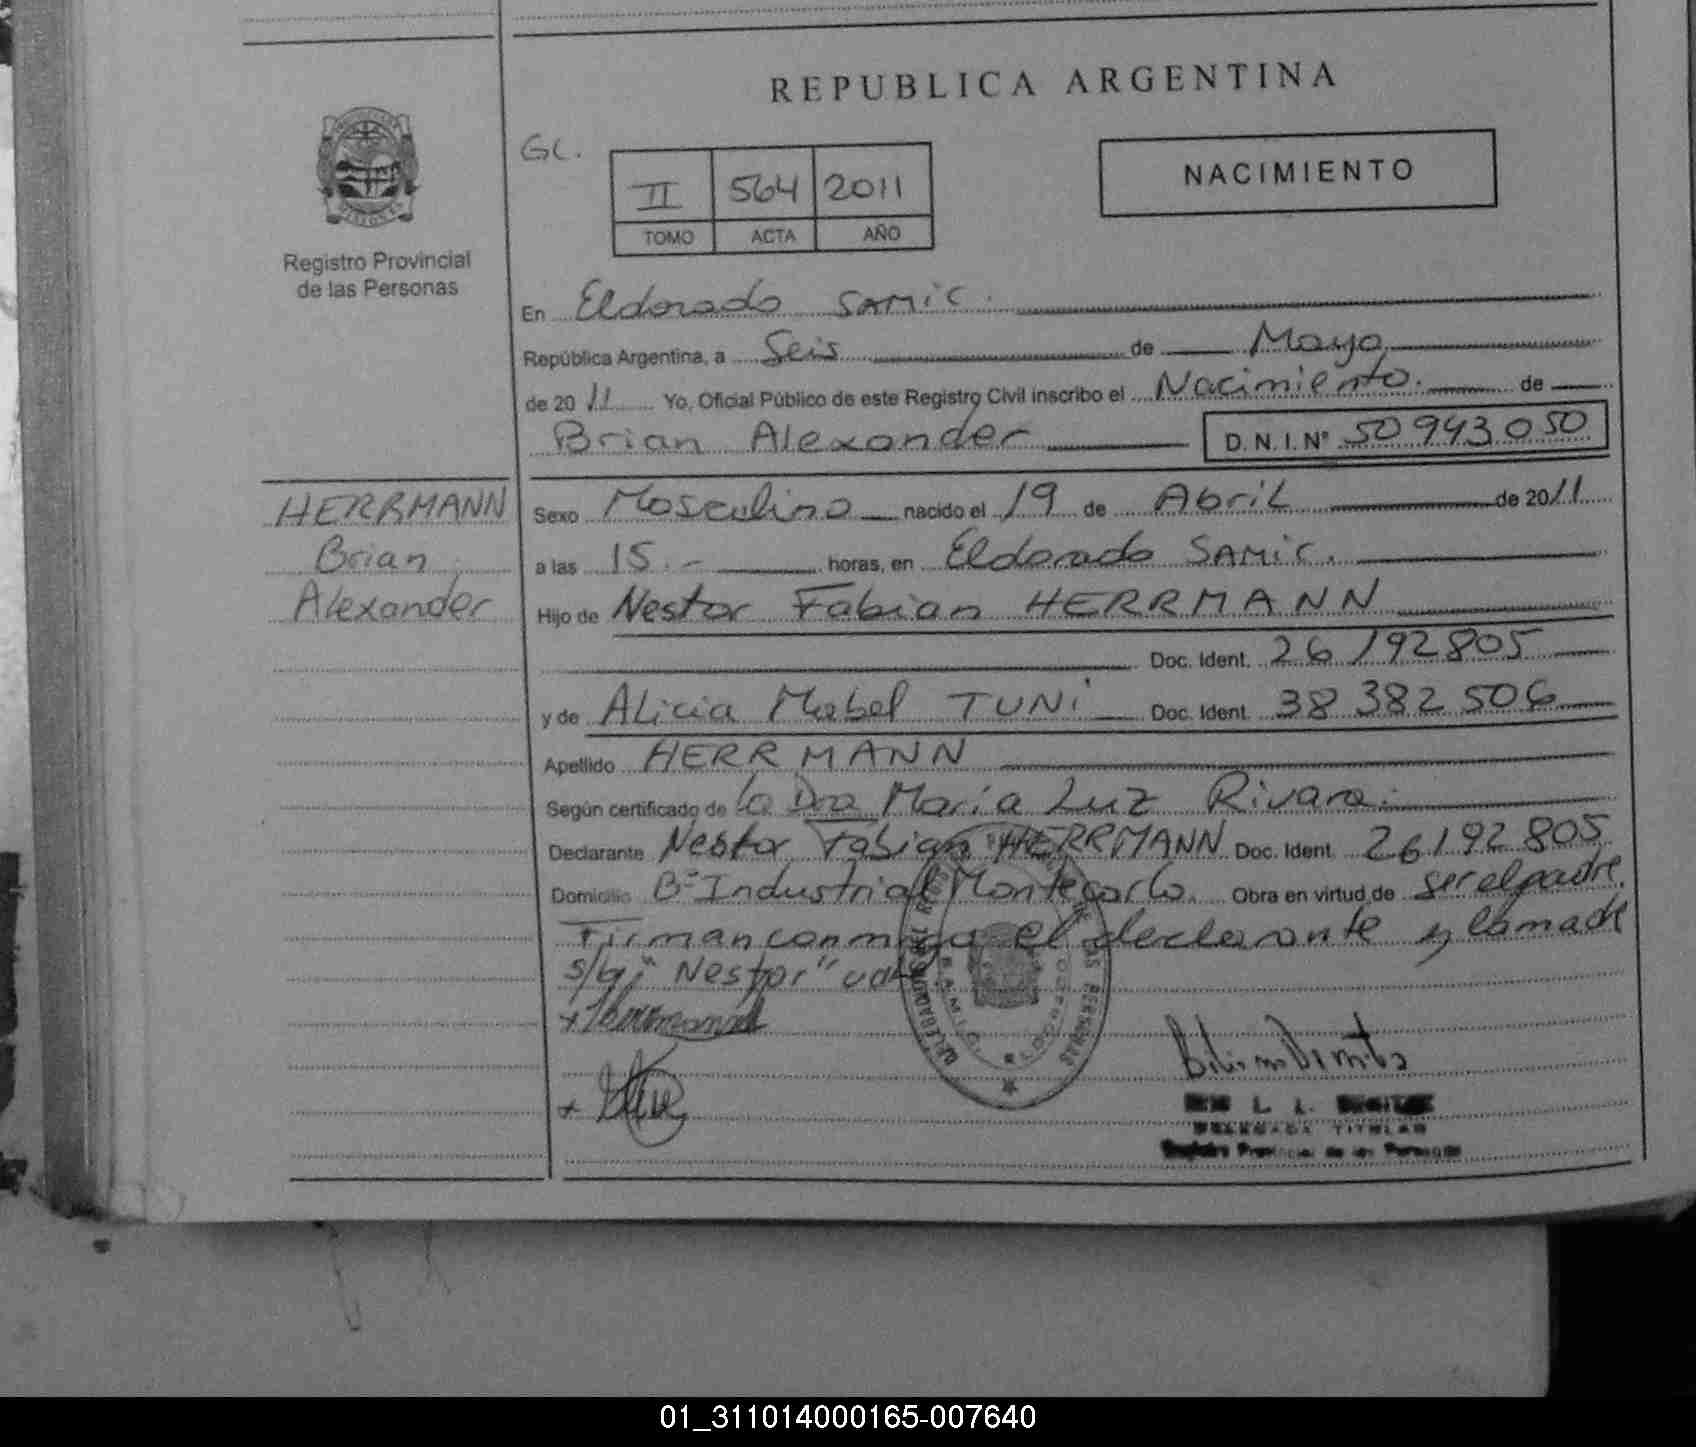 REPUBLICA ARGENTINA
Registro Provincial
de las Personas
GC.
NACIMIENTO
II 564 2011
TOMO ACTA AÑO
En Eldorado SAMIC.
República Argentina, a Seis de Mayo
de 2011 Yo, Oficial Público de este Registro Civil inscribo el Nacimiento. de
Brian Alexander D.N.I.Nº 50943050
HERRMANN
Brian
Alexander
Sexo Masculino nacido el 19 de Abril de 2011
a las 15.- horas, en Eldorado SAMIC.
Hijo de Nestor Fabian HERRMANN
Doc. Ident. 26192805
y de Alicia Mabel TUNI Doc. Ident. 38382506
Apellido HERRMANN
Según certificado de la Dra Maria Luz Rivara.
Declarante Nestor Fabian HERRMANN Doc. Ident. 26192805
Domicilio Bº Industrial Montecarlo. Obra en virtud de ser el padre.
Firman conmigo el declarante y la madre
s/b "Nestor"
Herrmann
DELEGADA TITULAR
Registro Provincial de las Personas
01_311014000165-007640